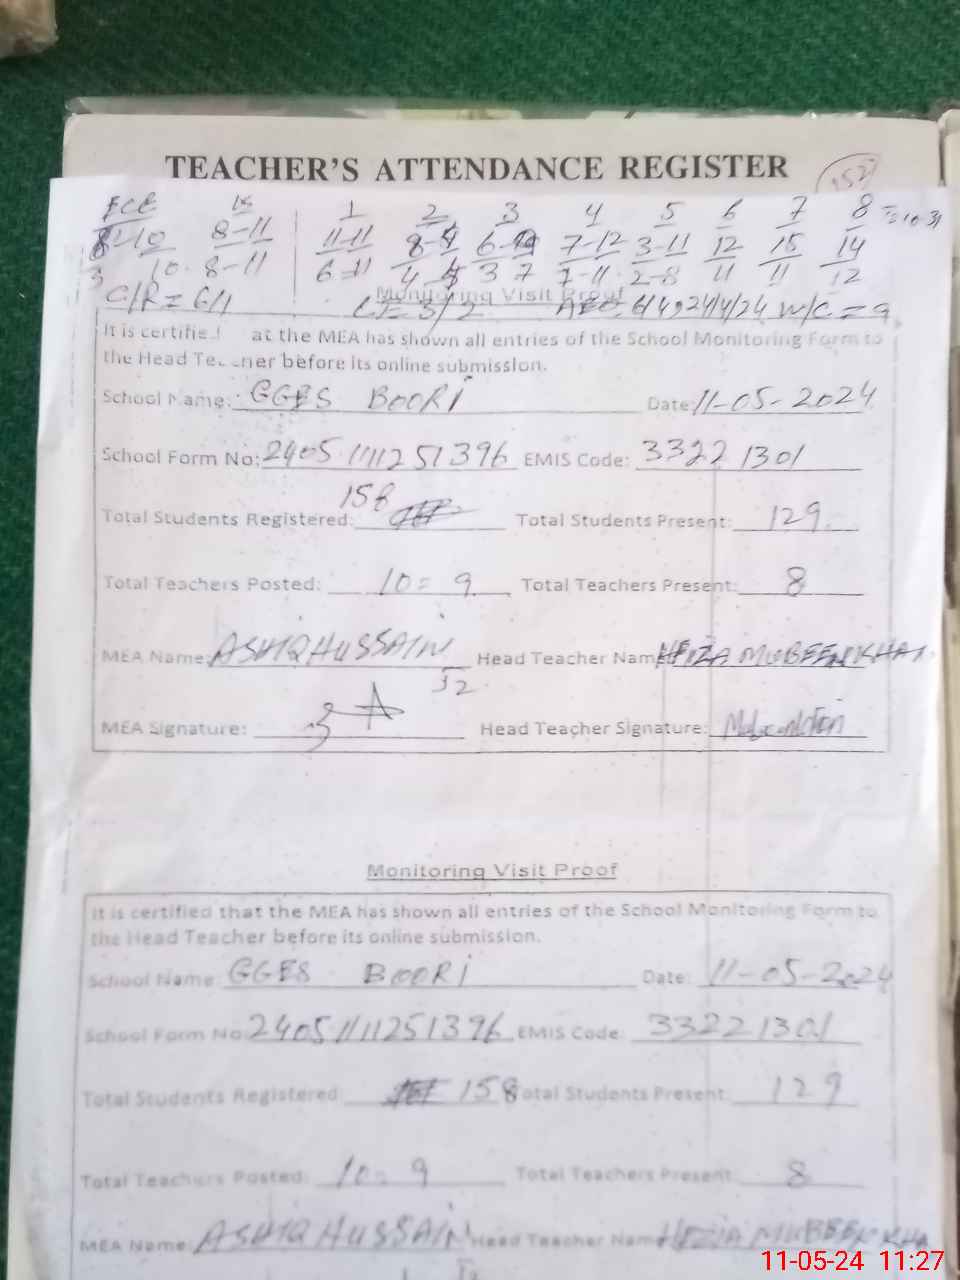 TEACHER'S ATTENDANCE REGISTER
ECE K 1 2 3 4 5 6 7 8
8-10 8-11 11-11 7-12 3-11 12 15 14
3 10 8-11 6-11 3 7 7-11 2-8 11 11 12
Monitoring Visit Proof
W/C = 9
It is certifie at the MEA has shown all entries of the School Monitoring Form to
the Head Teacher before its online submission.
School Name: GGES BOORI Date: 11-05-2024
School Form No: 24051111251396 EMIS Code: 33221301
Total Students Registered: 158 Total Students Present: 129
Total Teachers Posted: 10 = 9 Total Teachers Present: 8
MEA Name: ASHIQ HUSSAIN Head Teacher Name: MUBEEN KHA
52
MEA Signature: Head Teacher Signature:
Monitoring Visit Proof
It is certified that the MEA has shown all entries of the School Monitoring Form to
the Head Teacher before its online submission.
School Name: GGES BOORI Date: 11-05-2024
School Form No: 24051111251396 EMIS Code: 33221301
Total Students Registered 158 Total Students Present: 129
Total Teachers Posted: 10 = 9 Total Teachers Present: 8
MEA Name: ASHIQ HUSSAIN Head Teacher Name MUBEEN KHA
11-05-24 11:27